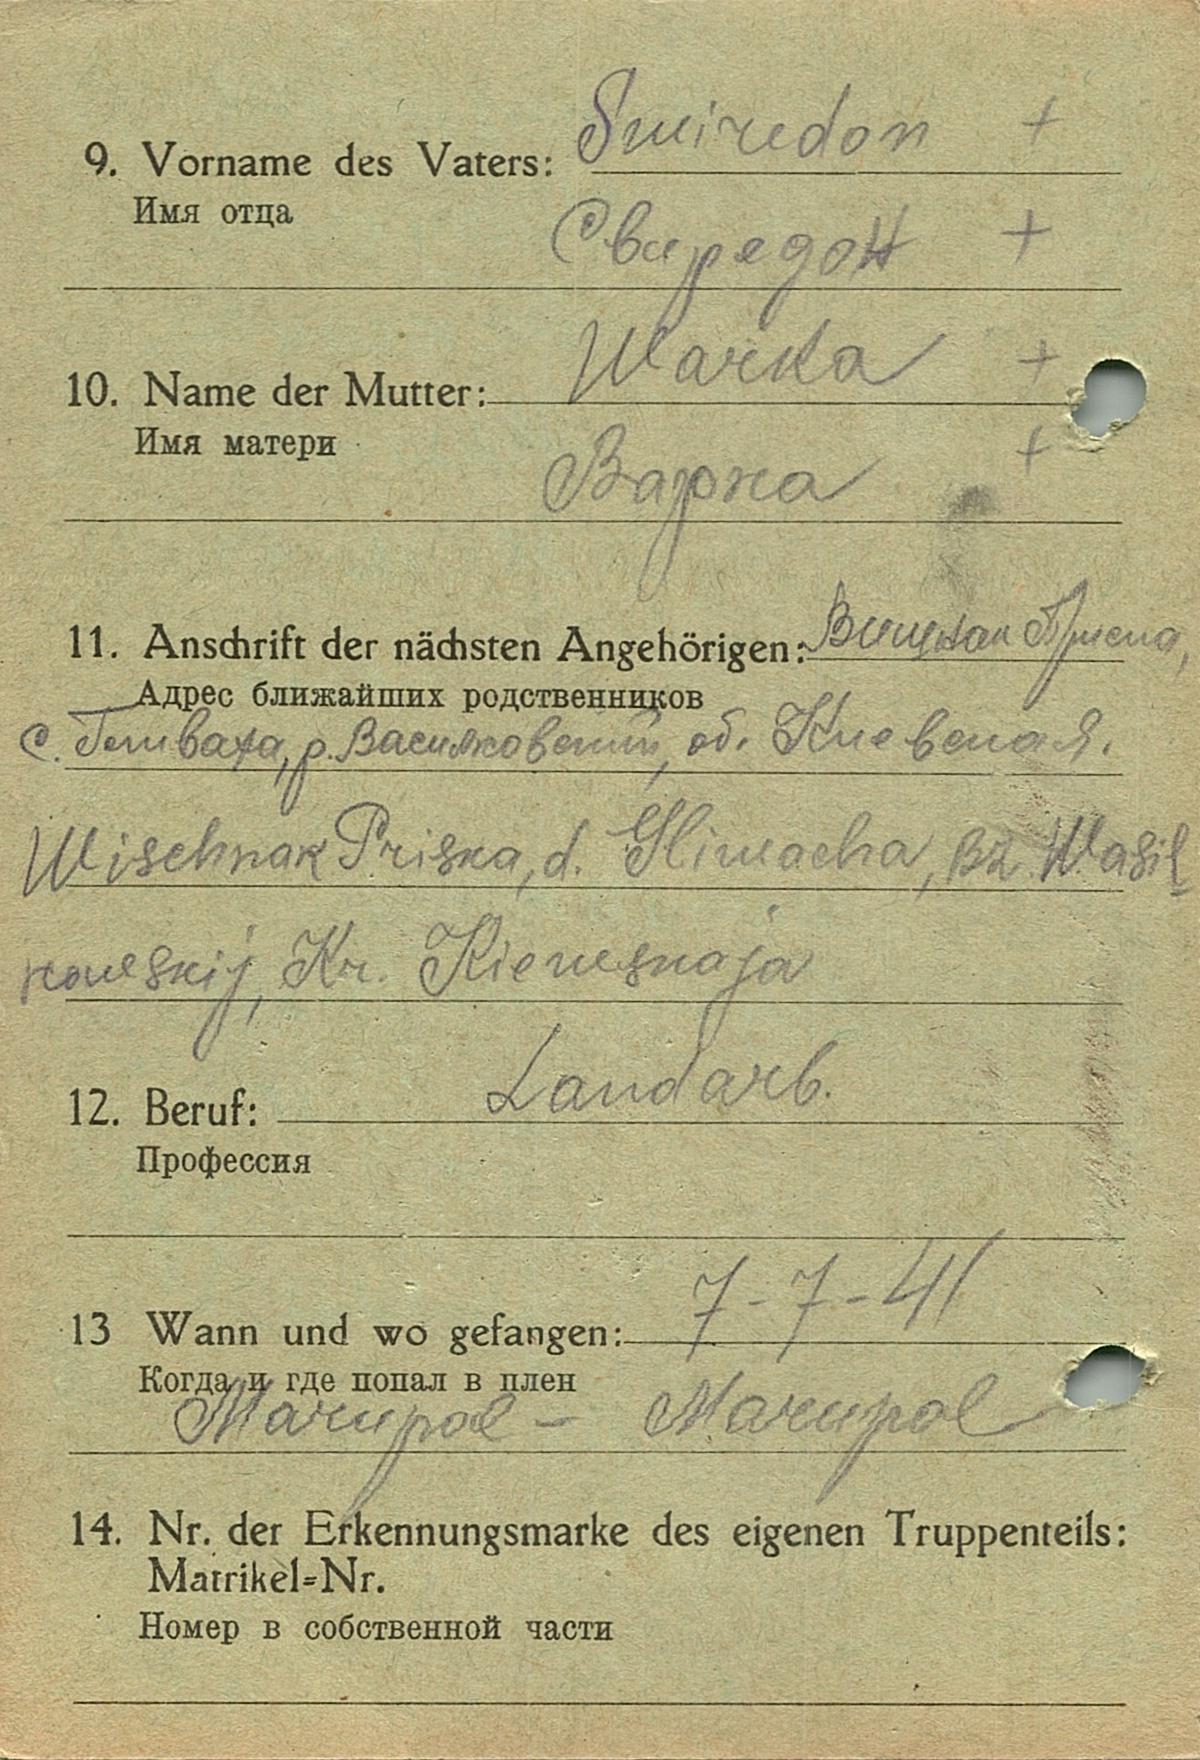 9. Vorname des Vaters: Swiredon +
Имя отца
Свиредон +
10. Name der Mutter: Warka +
Имя матери
Варка +
11. Anschrift der nächsten Angehörigen: Вишнак Приска,
Адрес ближайших родственников
с. Гливаха, р. Василковский, об. Киевская.
Wischnak Priska, d. Gliwacha, Bz. Wasil
kowskij, Kr. Kiewskaja
12. Beruf: Landarb.
Профессия
13 Wann und wo gefangen: 7-7-41
Когда и где попал в плен
Mariupol - Mariupol
14. Nr. der Erkennungsmarke des eigenen Truppenteils:
Matrikel=Nr.
Номер в собственной части